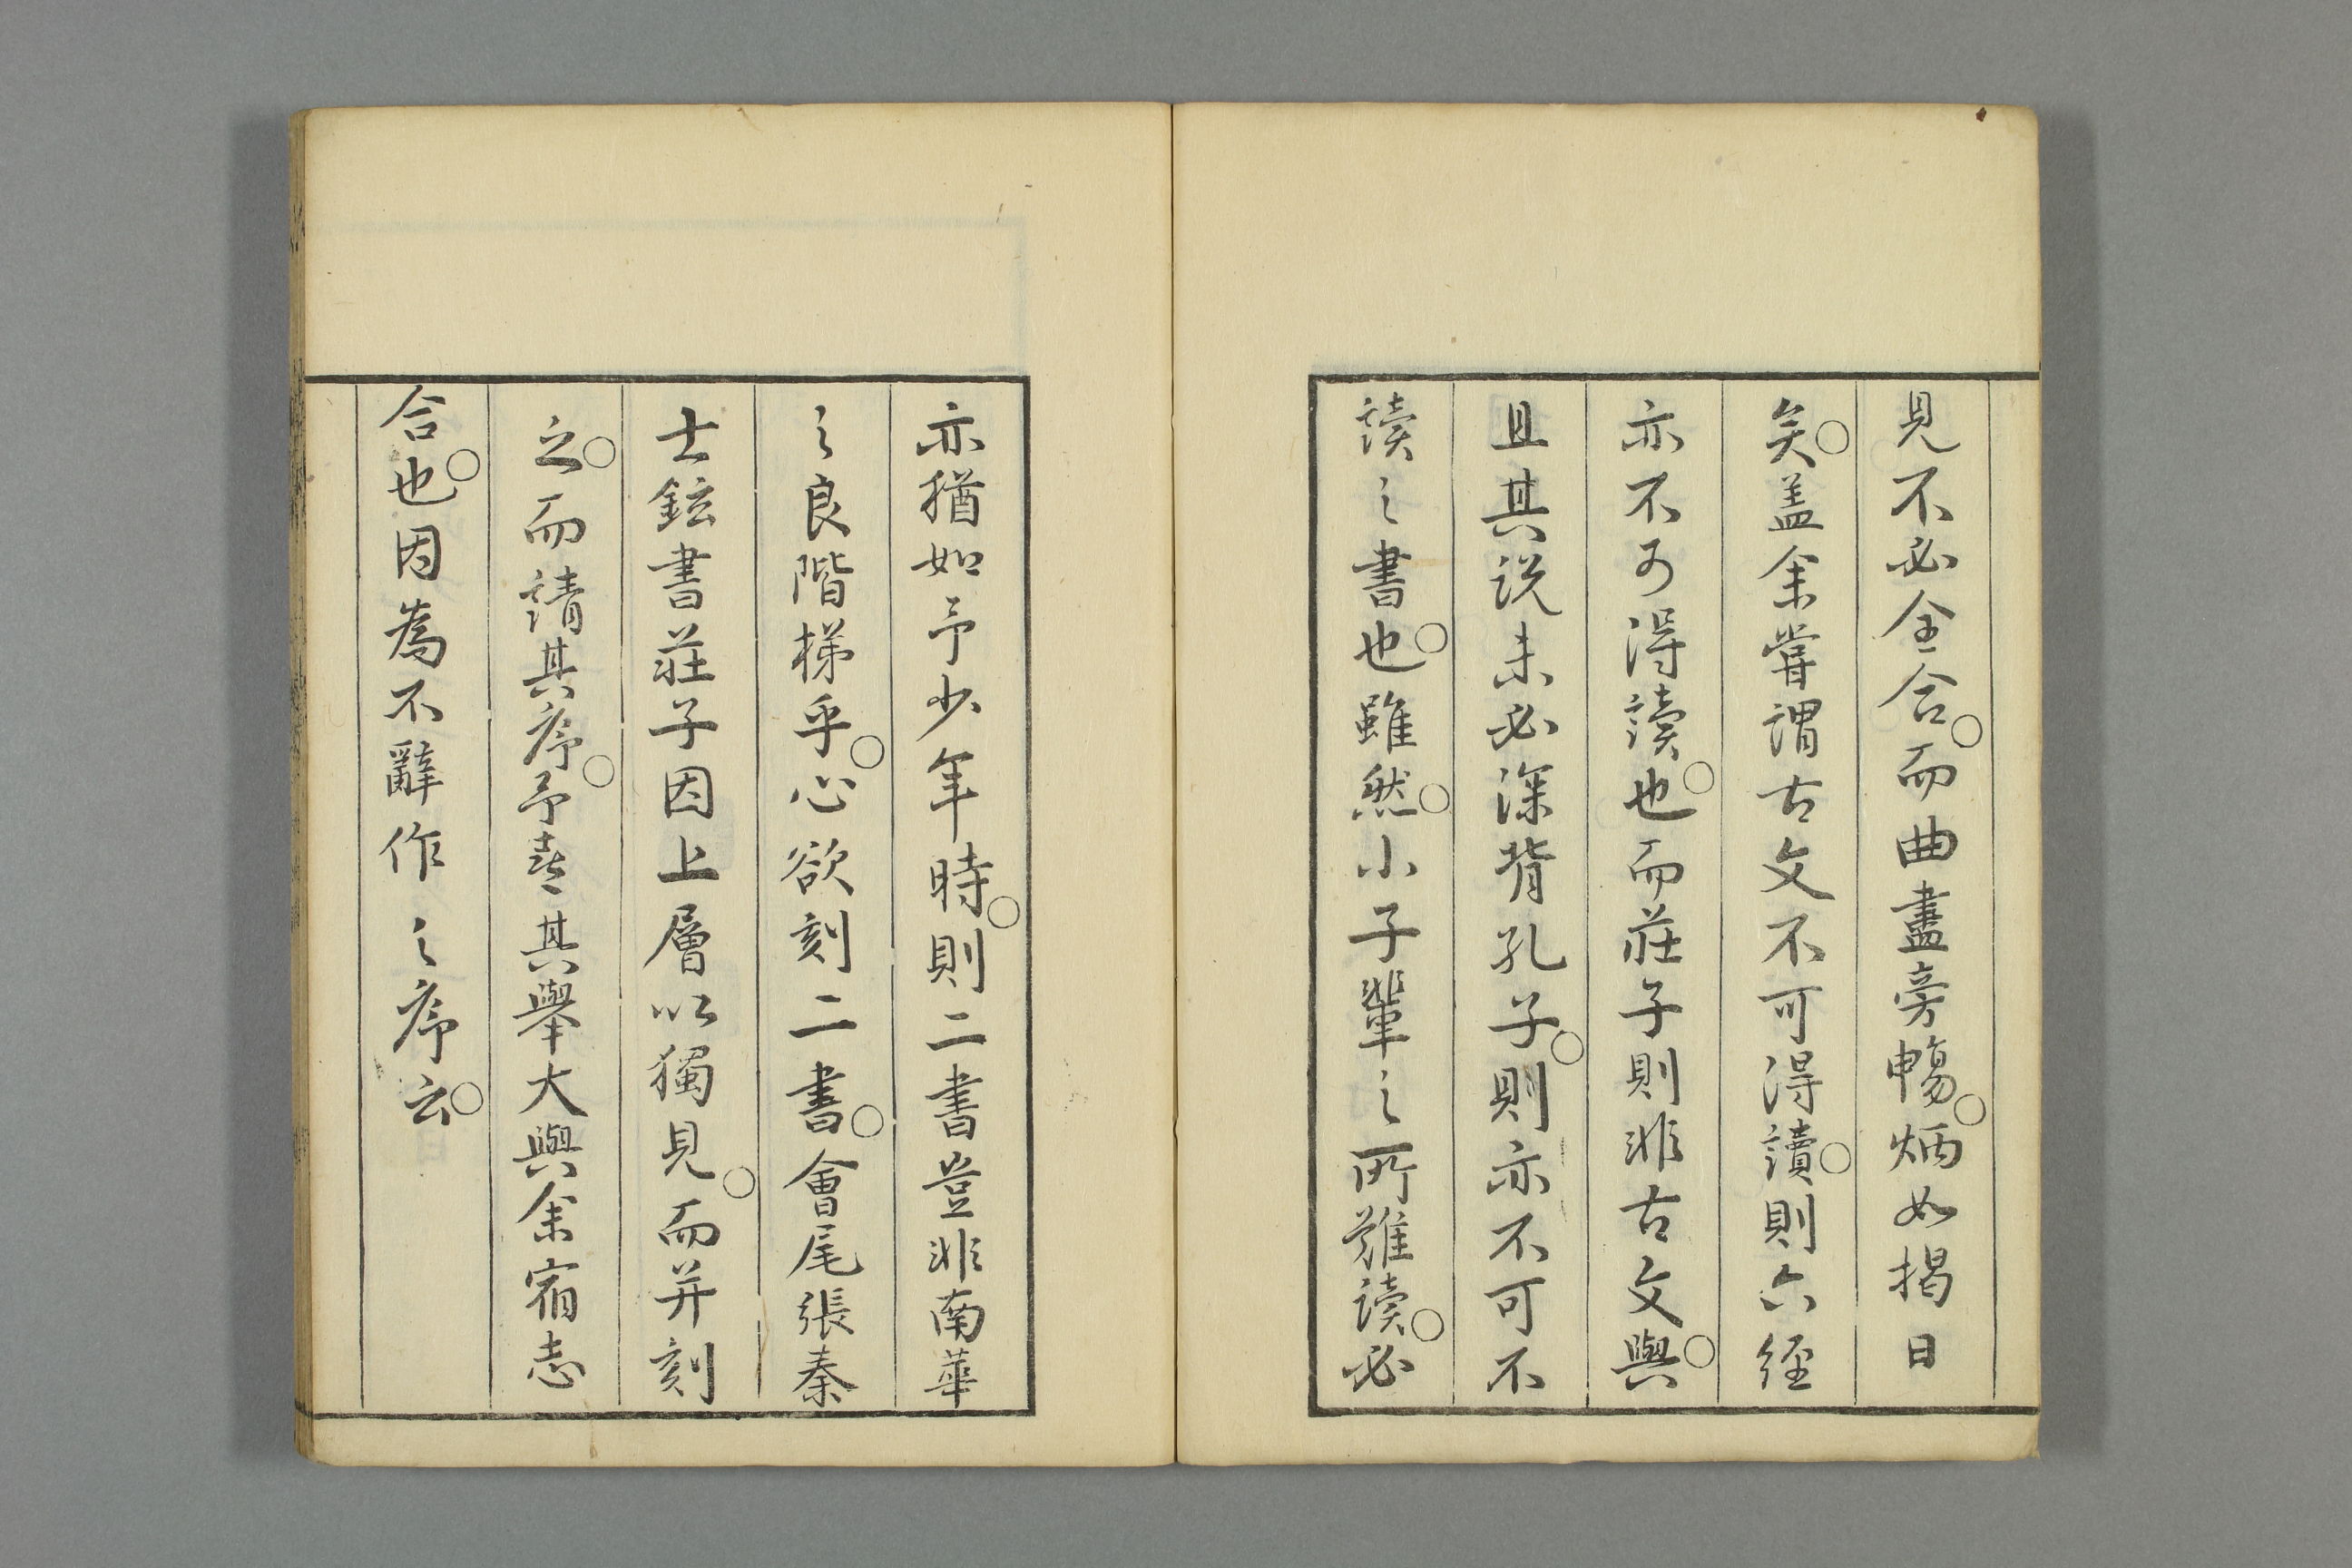 見不必全合○而曲盡旁暢○炳如揭日
矣○盖余嘗謂古文不可得讀○則六經
亦不可得讀也○而莊子則非古文與○
且其説未必深背孔子○則亦不可不
讀之書也○雖然○小子輩之所難讀○必
亦猶如予少年時○則二書豈非南華
之良階梯乎○心欲刻二書○會尾張秦
士鉉書莊子因上層以獨見○而并刻
之○而請其序○予喜其舉大與余宿志
合也○因為不辭作之序云○